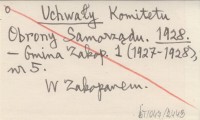 Uchwały Komitetu
Obrony Samorządu. 1928.
– Gmina Zakop. 1 (1927–1928),
nr 5.
W Zakopanem.